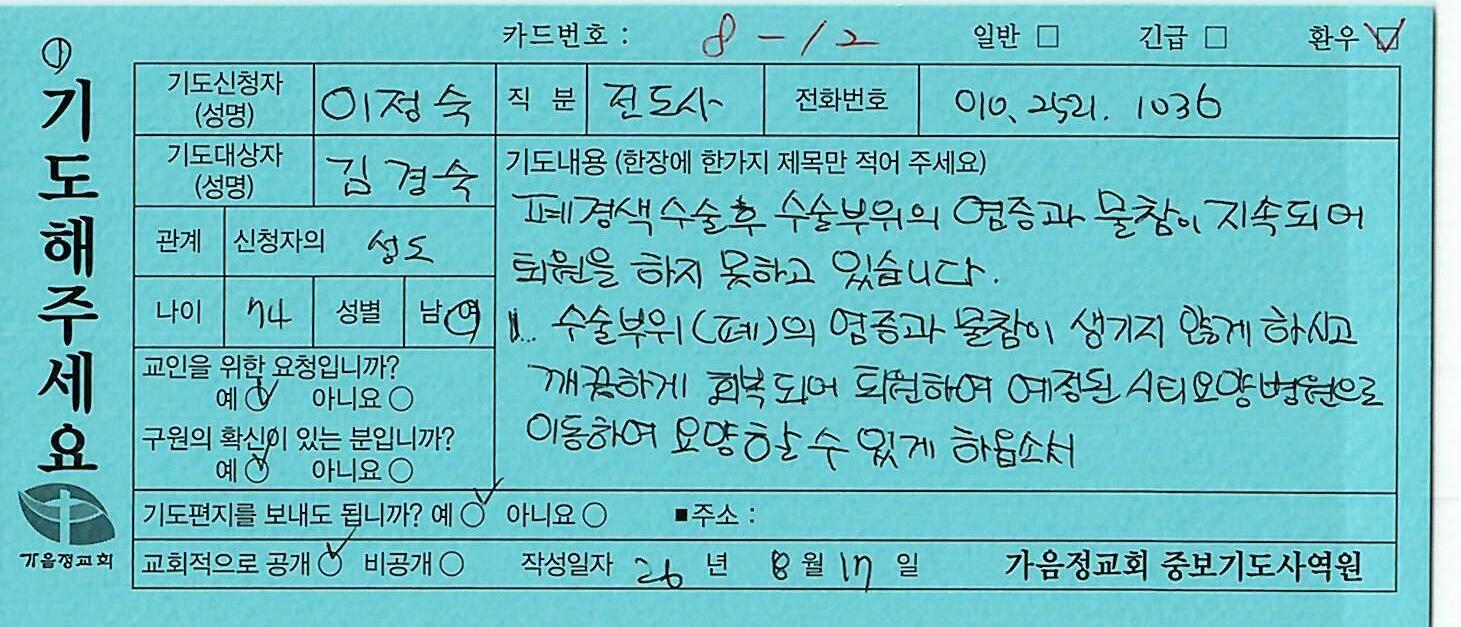 ① 기도해주세요
카드번호 : 8-12 일반 □ 긴급 □ 환우 ☑
기도신청자 (성명) 이정숙 직 분 전도사 전화번호 010. 2521. 1036
기도대상자 (성명) 김경숙
관계 신청자의 성도
나이 74 성별 남 여
교인을 위한 요청입니까?
예 ✓ 아니요 ○
구원의 확신이 있는 분입니까?
예 ✓ 아니요 ○
기도내용 (한장에 한가지 제목만 적어 주세요)
폐경색수술후 수술부위의 염증과 물참이 지속되어
퇴원을 하지 못하고 있습니다.
1. 수술부위(폐)의 염증과 물참이 생기지 않게 하시고
깨끗하게 회복되어 퇴원하여 예정된 시티요양병원으로
이동하여 요양할 수 있게 하옵소서
기도편지를 보내도 됩니까? 예 ✓ 아니요 ○ ■주소 :
교회적으로 공개 ✓ 비공개 ○ 작성일자 26 년 8 월 17 일 가음정교회 중보기도사역원
가음정교회